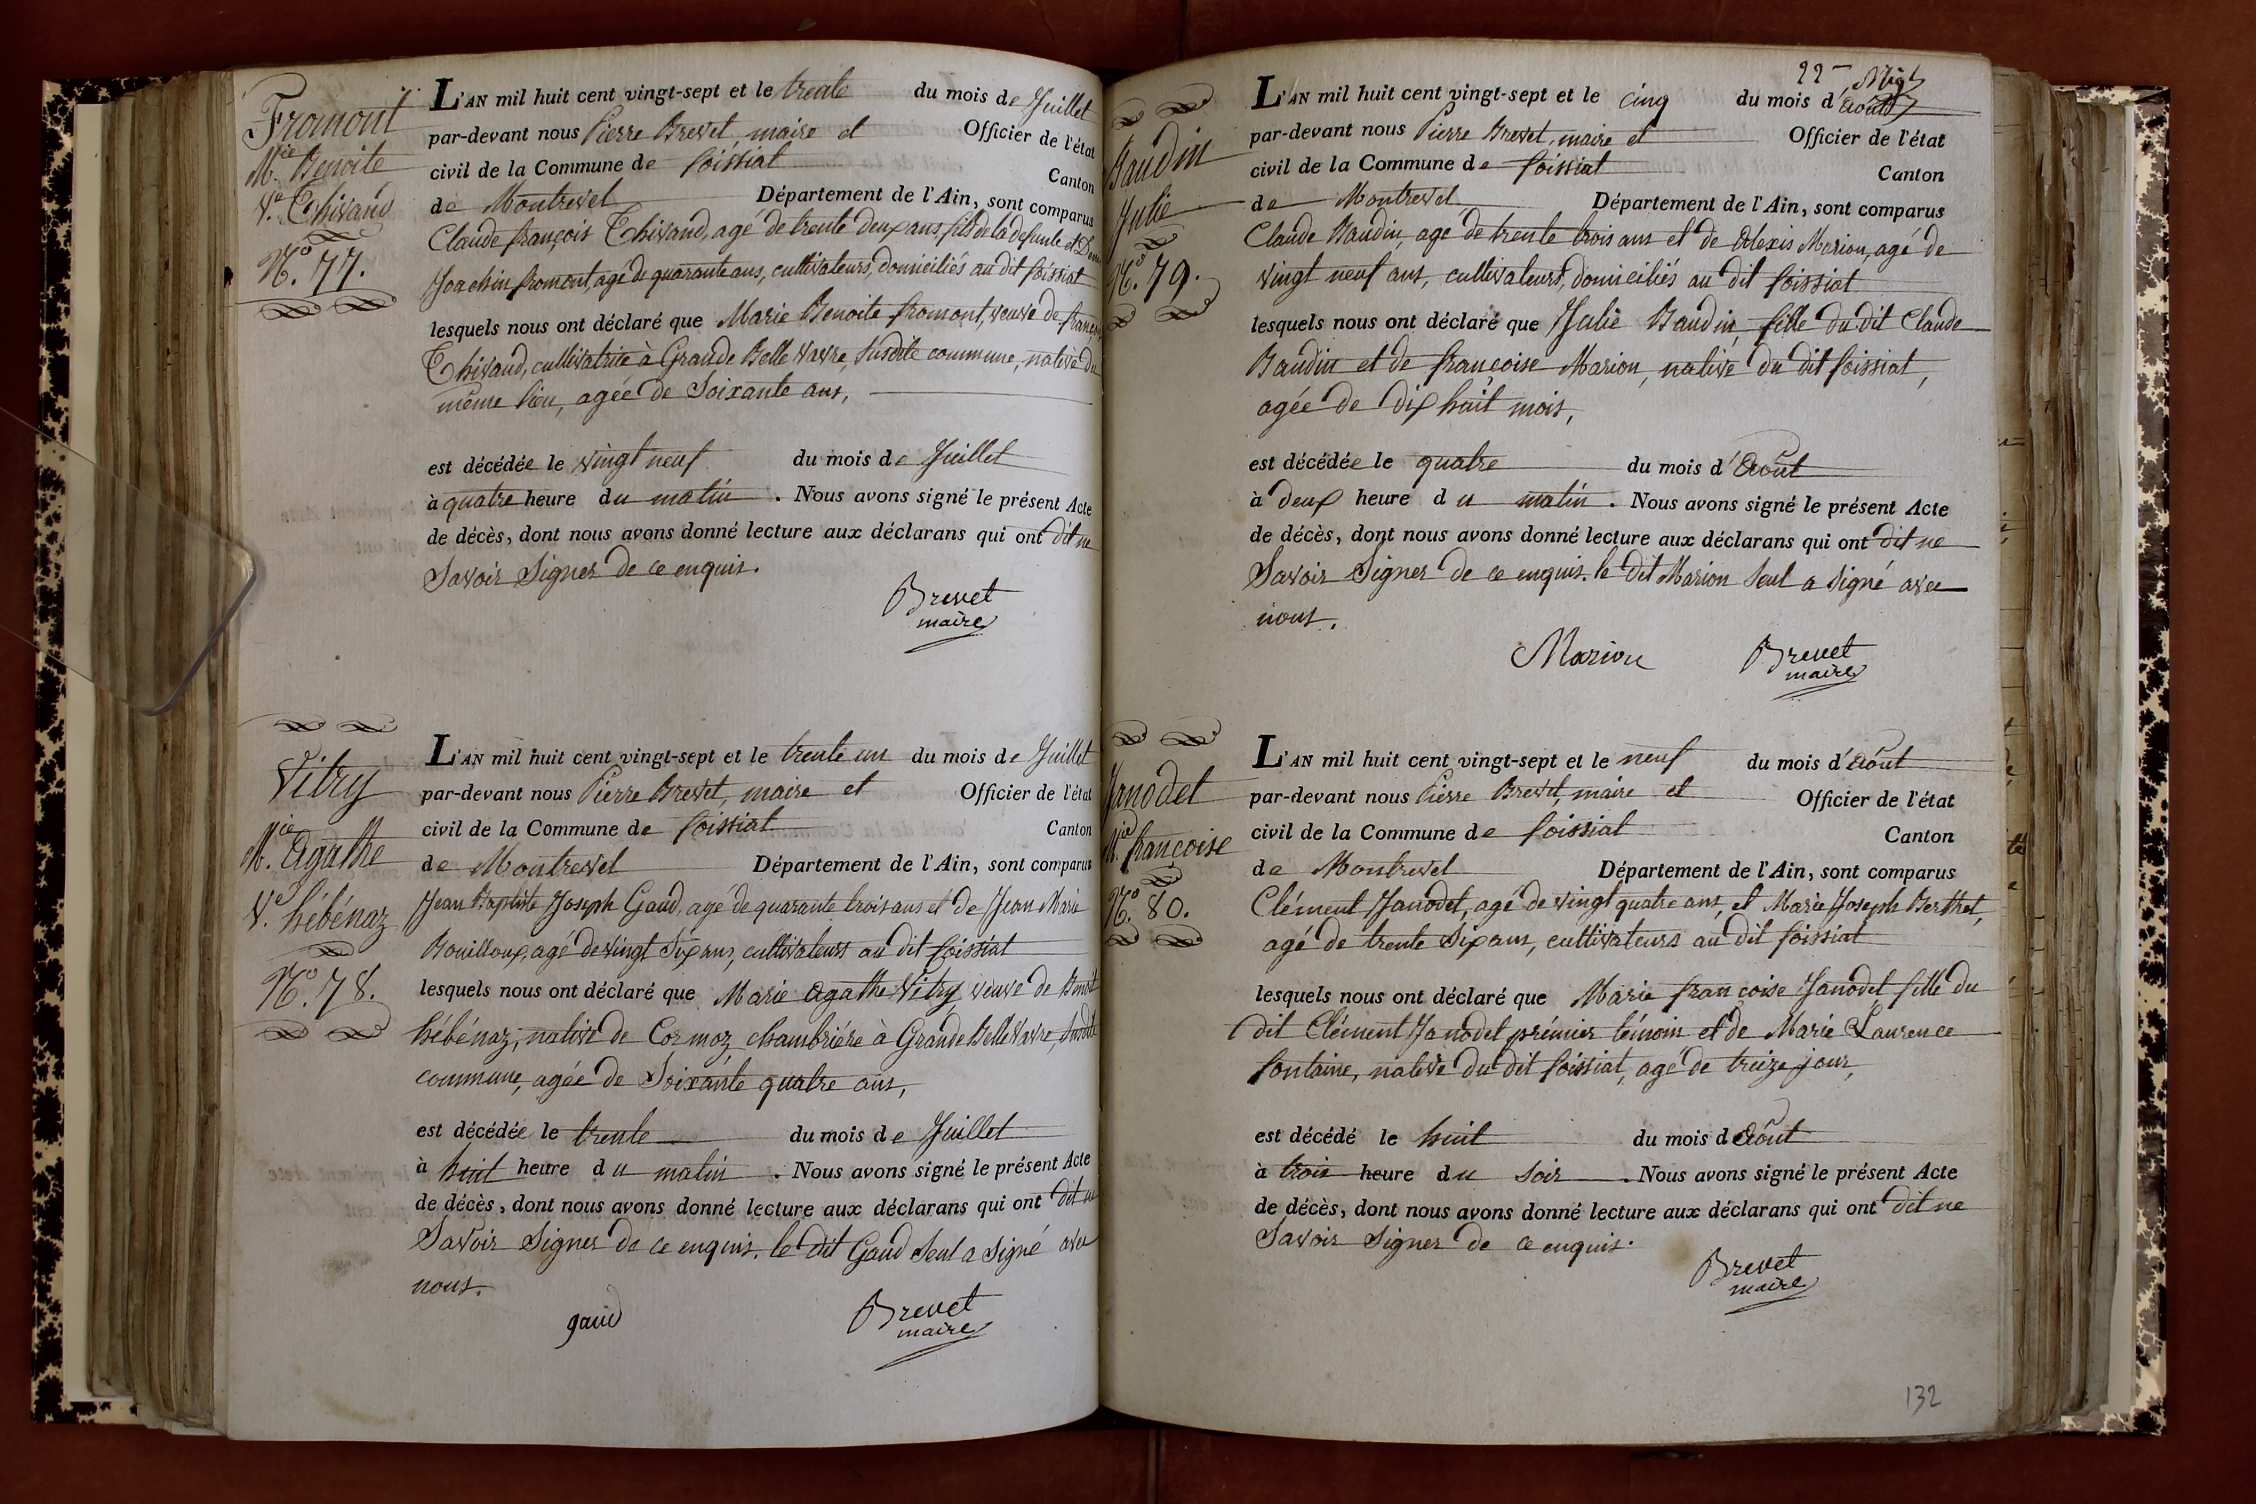 Fromont
M.ie Benoite
V.e Thivaud
N.o 77.
L'AN mil huit cent vingt-sept et le trente du mois de Juillet
par-devant nous Pierre Brevet, maire et Officier de l'état
civil de la Commune de foissiat Canton
de Montrevel Département de l'Ain, sont comparus
Claude françois Thivaud, agé de trente deux ans, fils de la defunte et De
Joachin fromont, agé de quarante ans, cultivateurs, domiciliés au dit foissiat
lesquels nous ont déclaré que Marie Benoite fromont, veuve de françois
Thivaud, cultivatrice à Grande Belle vavre, susdite commune, native du
même lieu, agée de Soixante ans,
est décédée le vingt neuf du mois de Juillet
à quatre heure du matin . Nous avons signé le présent Acte
de décès, dont nous avons donné lecture aux déclarans qui ont dit ne
Savoir Signer de ce enquis.
Brevet
maire
Vitry
M.ie Agathe
V.e hébénaz
N.o 78.
L'AN mil huit cent vingt-sept et le trente un du mois de Juillet
par-devant nous Pierre Brevet, maire et Officier de l'état
civil de la Commune de foissiat Canton
de Montrevel Département de l'Ain, sont comparus
Jean Baptiste Joseph Gaud, agé de quarante trois ans et de Jean Marie
Bouilloux, agé de vingt Six ans, cultivateurs au dit foissiat
lesquels nous ont déclaré que Marie Agathe Vitry veuve de Benoit
hébénaz, native de Cormoz chambriére à Grande Belle Vavre, susdite
commune, agée de Soixante quatre ans,
est décédée le trente du mois de Juillet
à huit heure du matin . Nous avons signé le présent Acte
de décès, dont nous avons donné lecture aux déclarans qui ont dit ne
Savoir Signer de ce enquis. le dit Gaud Seul a Signé avec
nous.
gaud Brevet
maire
22
Baudin
Julie
N.o 79.
L'AN mil huit cent vingt-sept et le cinq du mois d'Août
par-devant nous Pierre Brevet, maire et Officier de l'état
civil de la Commune de foissiat Canton
de Montrevel Département de l'Ain, sont comparus
Claude Baudin, agé de trente trois ans et de Alexis Marion, agé de
vingt neuf ans, cultivateurs, domiciliés au dit foissiat
lesquels nous ont déclaré que Julie Baudin, fille du dit Claude
Baudin et de françoise Marion, native du dit foissiat,
agée de dix huit mois,
est décédée le quatre du mois d'Août
à deux heure du matin . Nous avons signé le présent Acte
de décès, dont nous avons donné lecture aux déclarans qui ont dit ne
Savoir Signer de ce enquis. le dit Marion Seul a signé avec
nous.
Marion Brevet
maire
Janodet
M.ie françoise
N.o 80.
L'AN mil huit cent vingt-sept et le neuf du mois d'Août
par-devant nous Pierre Brevet, maire et Officier de l'état
civil de la Commune de foissiat Canton
de Montrevel Département de l'Ain, sont comparus
Clément Janodet, agé de vingt quatre ans, et Marie Joseph Berthet,
agé de trente Six ans, cultivateurs au dit foissiat
lesquels nous ont déclaré que Marie françoise Janodet fille du
dit Clément Janodet prémier témoin et de Marie Laurence
fontaine, native du dit foissiat, agé de treize jour,
est décédé le huit du mois d Août
à trois heure du soir . Nous avons signé le présent Acte
de décès, dont nous avons donné lecture aux déclarans qui ont dit ne
Savoir Signer de ce enquis.
Brevet
maire
132